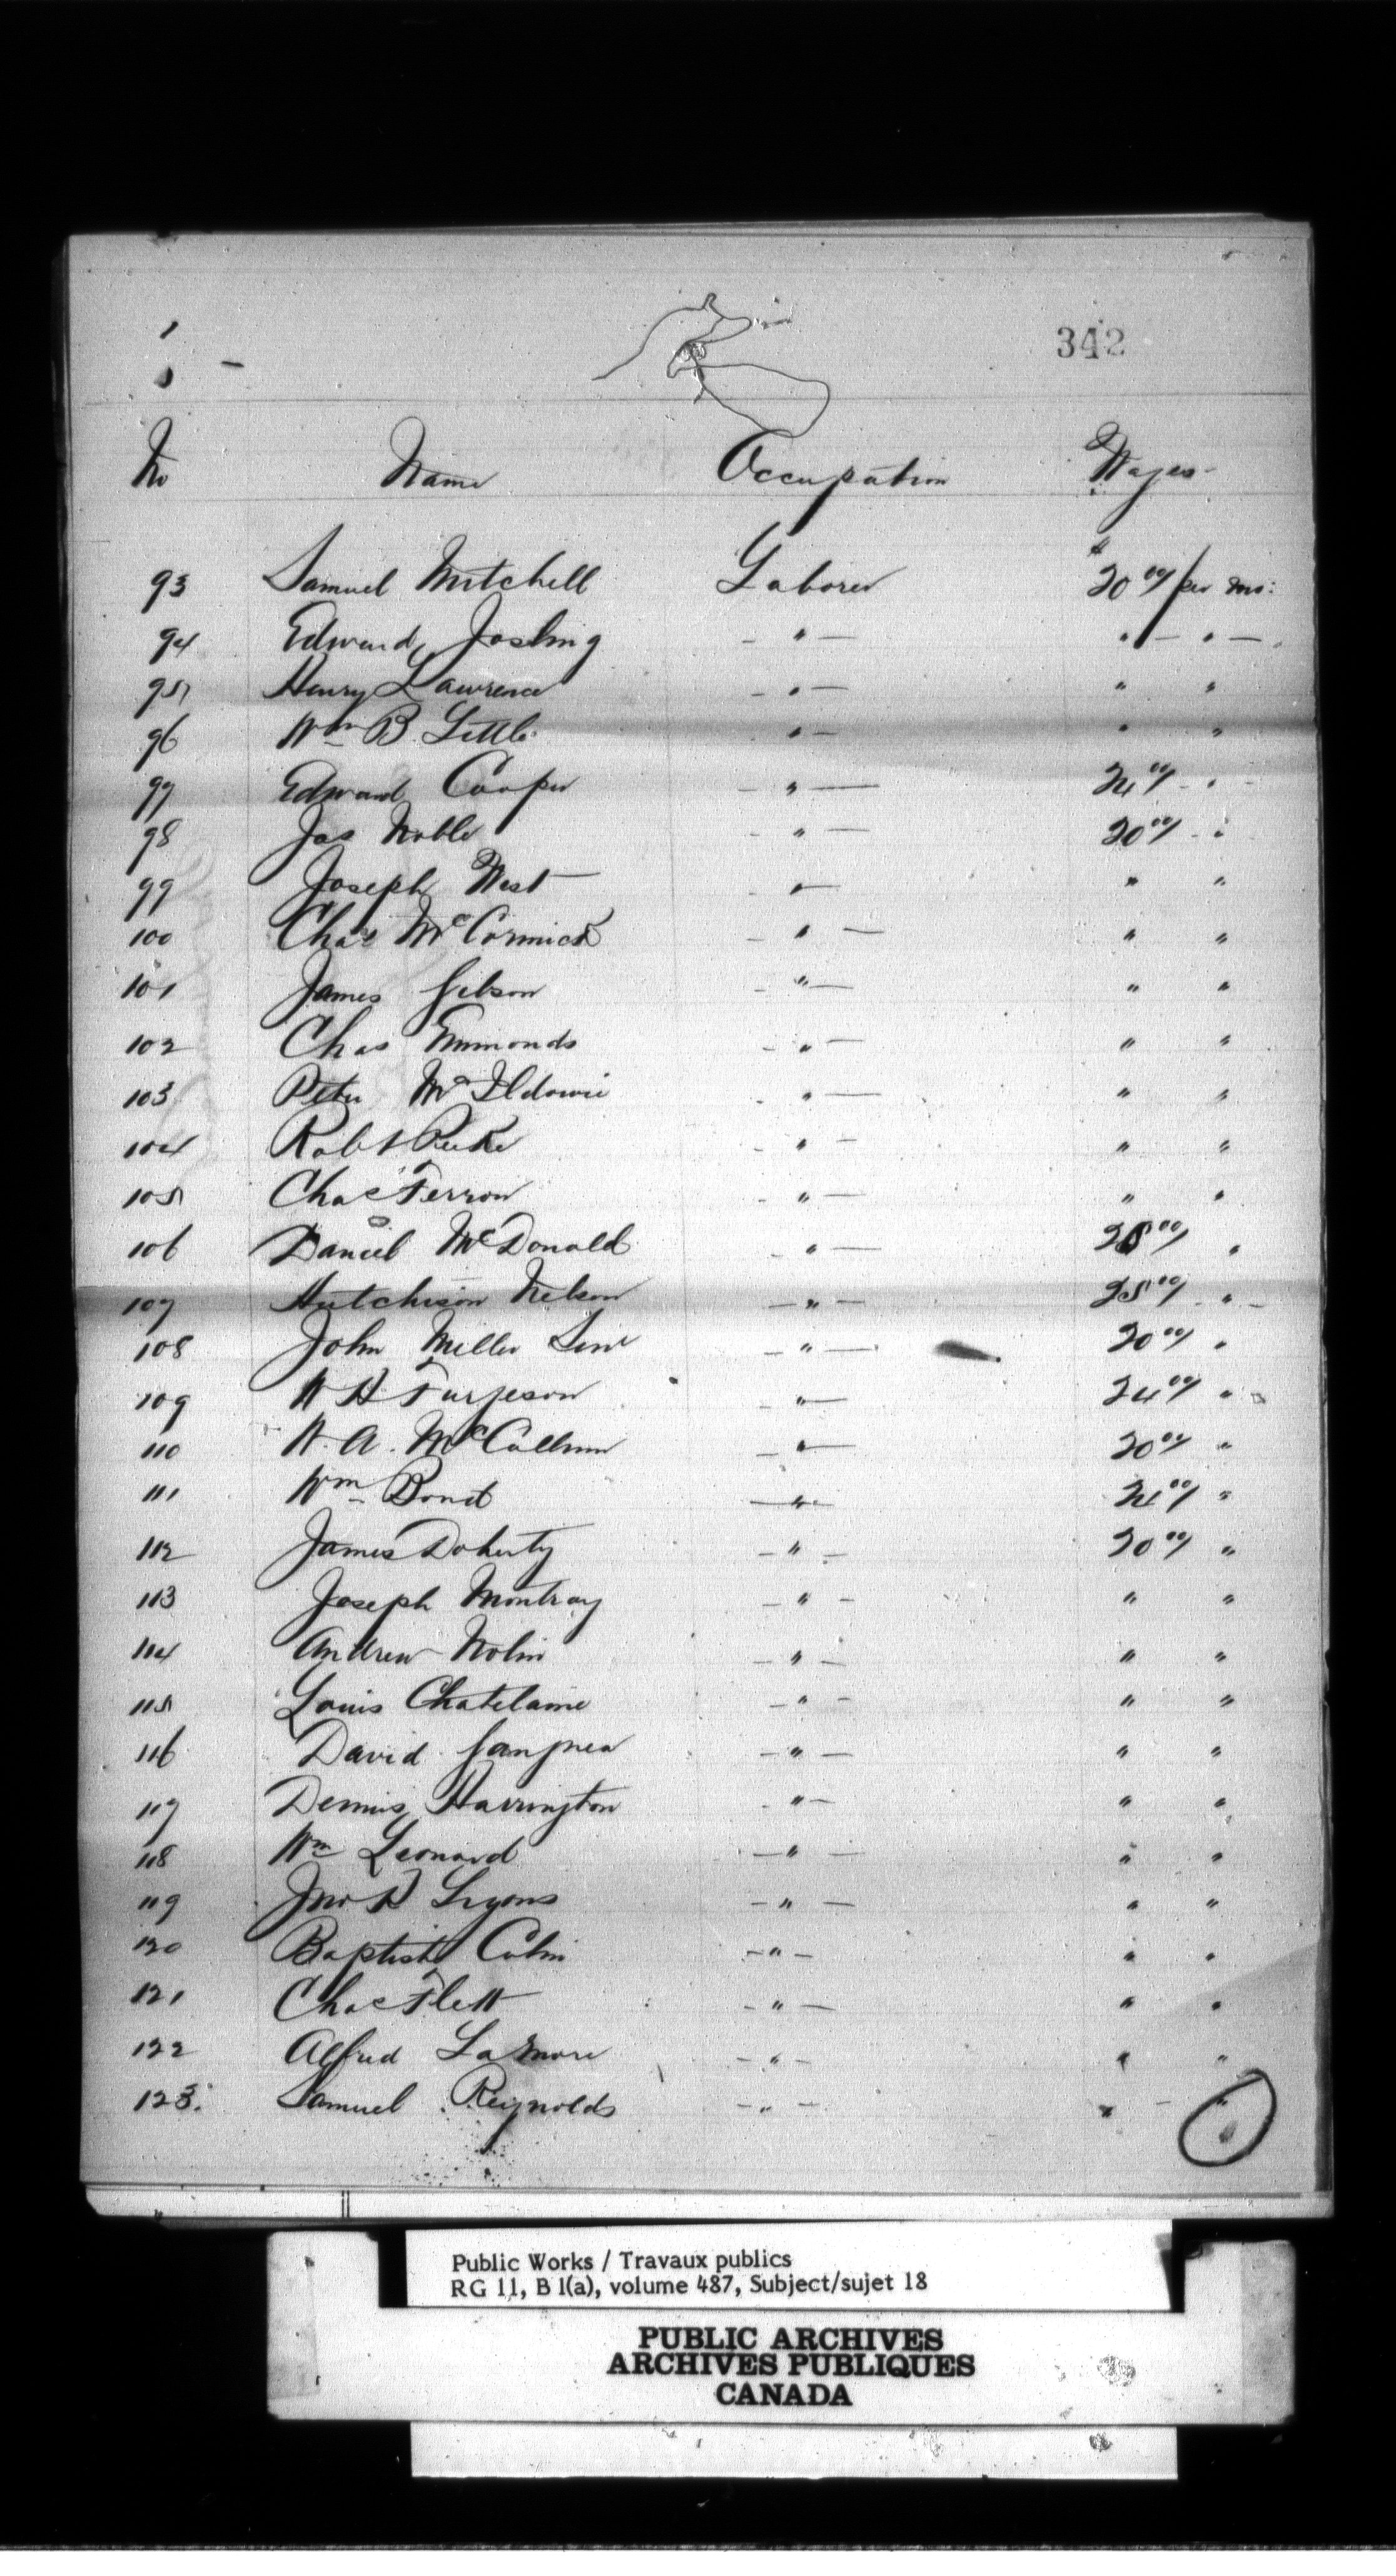 342
No Name Occupation Wages
93 Samuel Mitchell Laborer $20 00/ per mo:
94 Edward Josling - " - " - " -
95 Henry Lawrence - " - " "
96 Wm B. Little " - " "
97 Edward Cooper - " - 24 00/ - "
98 Jas Noble - " - 20 00/ - "
99 Joseph West - " - " "
100 Chas McCormick - " - " "
101 James Gibson - " - " "
102 Chas Emmonds - " - " "
103 Peter McIldowie - " - " "
104 Robt - " - " "
105 Chas Ferron - " - " "
106 Daniel McDonald - " - 25 00/ "
107 Hutchison Nelson - " - 25 00/ - " -
108 John Miller Senr - " - 20 00/ "
109 W H Furgeson - " - 24 00/ "
110 W. A. McCallum - " - 20 00/ "
111 Wm Bond - " - 24 00/ "
112 James Doherty - " - 20 00/ "
113 Joseph Montray - " - " "
114 Andrew Nolin - " - " "
115 Louis Chatelaine - " - " "
116 David - " - " "
117 Dennis Harrington - " - " "
118 Wm Leonard - " - " "
119 Jno R Lyons - " - " "
120 Baptiste - " - " "
121 Chas Flett - " - " "
122 Alfred LaMore - " - " "
123. Samuel Reynolds - " - " - "
Public Works / Travaux publics
RG 11, B 1(a), volume 487, Subject/sujet 18
PUBLIC ARCHIVES
ARCHIVES PUBLIQUES
CANADA